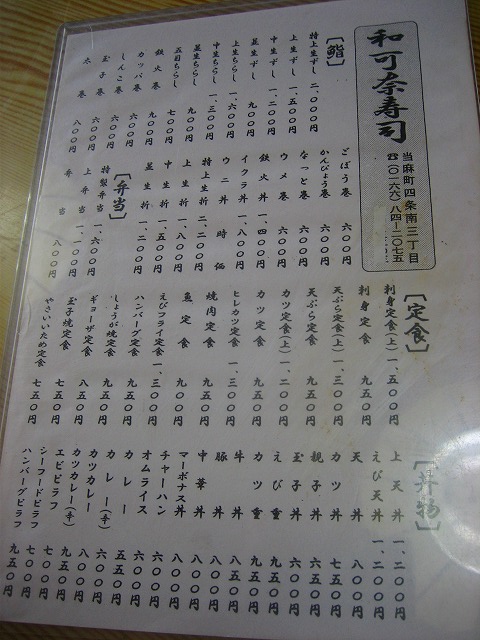 和可奈寿司
当麻町四条南三丁目
☎(〇一六六)八四-二〇七五
［鮨］
特上生ずし 二、〇〇〇円
上生ずし 一、五〇〇円
中生ずし 一、二〇〇円
並生ずし 九〇〇円
上生ちらし 一、六〇〇円
中生ちらし 一、三〇〇円
並生ちらし 九〇〇円
五目ちらし 七〇〇円
鉄火巻 九〇〇円
カッパ巻 六〇〇円
しんこ巻 六〇〇円
玉子巻 六〇〇円
太巻 八〇〇円
ごぼう巻 六〇〇円
かんぴょう巻 六〇〇円
なっと巻 六〇〇円
ウメ巻 六〇〇円
鉄火丼 一、四〇〇円
イクラ丼 一、八〇〇円
ウニ丼 時価
特上生折 二、二〇〇円
上生折 一、八〇〇円
中生折 一、五〇〇円
並生折 一、二〇〇円
［弁当］
特製弁当 一、六〇〇円
上弁当 一、一〇〇円
弁当 八〇〇円
［定食］
刺身定食(上) 一、五〇〇円
刺身定食 九五〇円
天ぷら定食(上) 一、三〇〇円
天ぷら定食 九五〇円
カツ定食(上) 一、二〇〇円
カツ定食 九五〇円
ヒレカツ定食 一、三〇〇円
焼肉定食 九五〇円
魚定食 九〇〇円
えびフライ定食 一、三〇〇円
ハンバーグ定食 九五〇円
しょうが焼定食 九五〇円
ギョーザ定食 八五〇円
玉子焼定食 七五〇円
やさいいため定食 七五〇円
［丼物］
上天丼 一、二〇〇円
えび天丼 一、二〇〇円
天丼 八〇〇円
カツ丼 七五〇円
親子丼 六五〇円
玉子丼 六〇〇円
えび重 九五〇円
カツ重 九五〇円
牛丼 八五〇円
豚丼 八〇〇円
中華丼 八〇〇円
マーボナス丼 八〇〇円
チャーハン 六〇〇円
オムライス 六〇〇円
カレー 五五〇円
カレー(辛) 六〇〇円
カツカレー 八〇〇円
カツカレー(辛) 九五〇円
エビピラフ 七〇〇円
シーフードピラフ 七〇〇円
ハンバーグピラフ 九五〇円